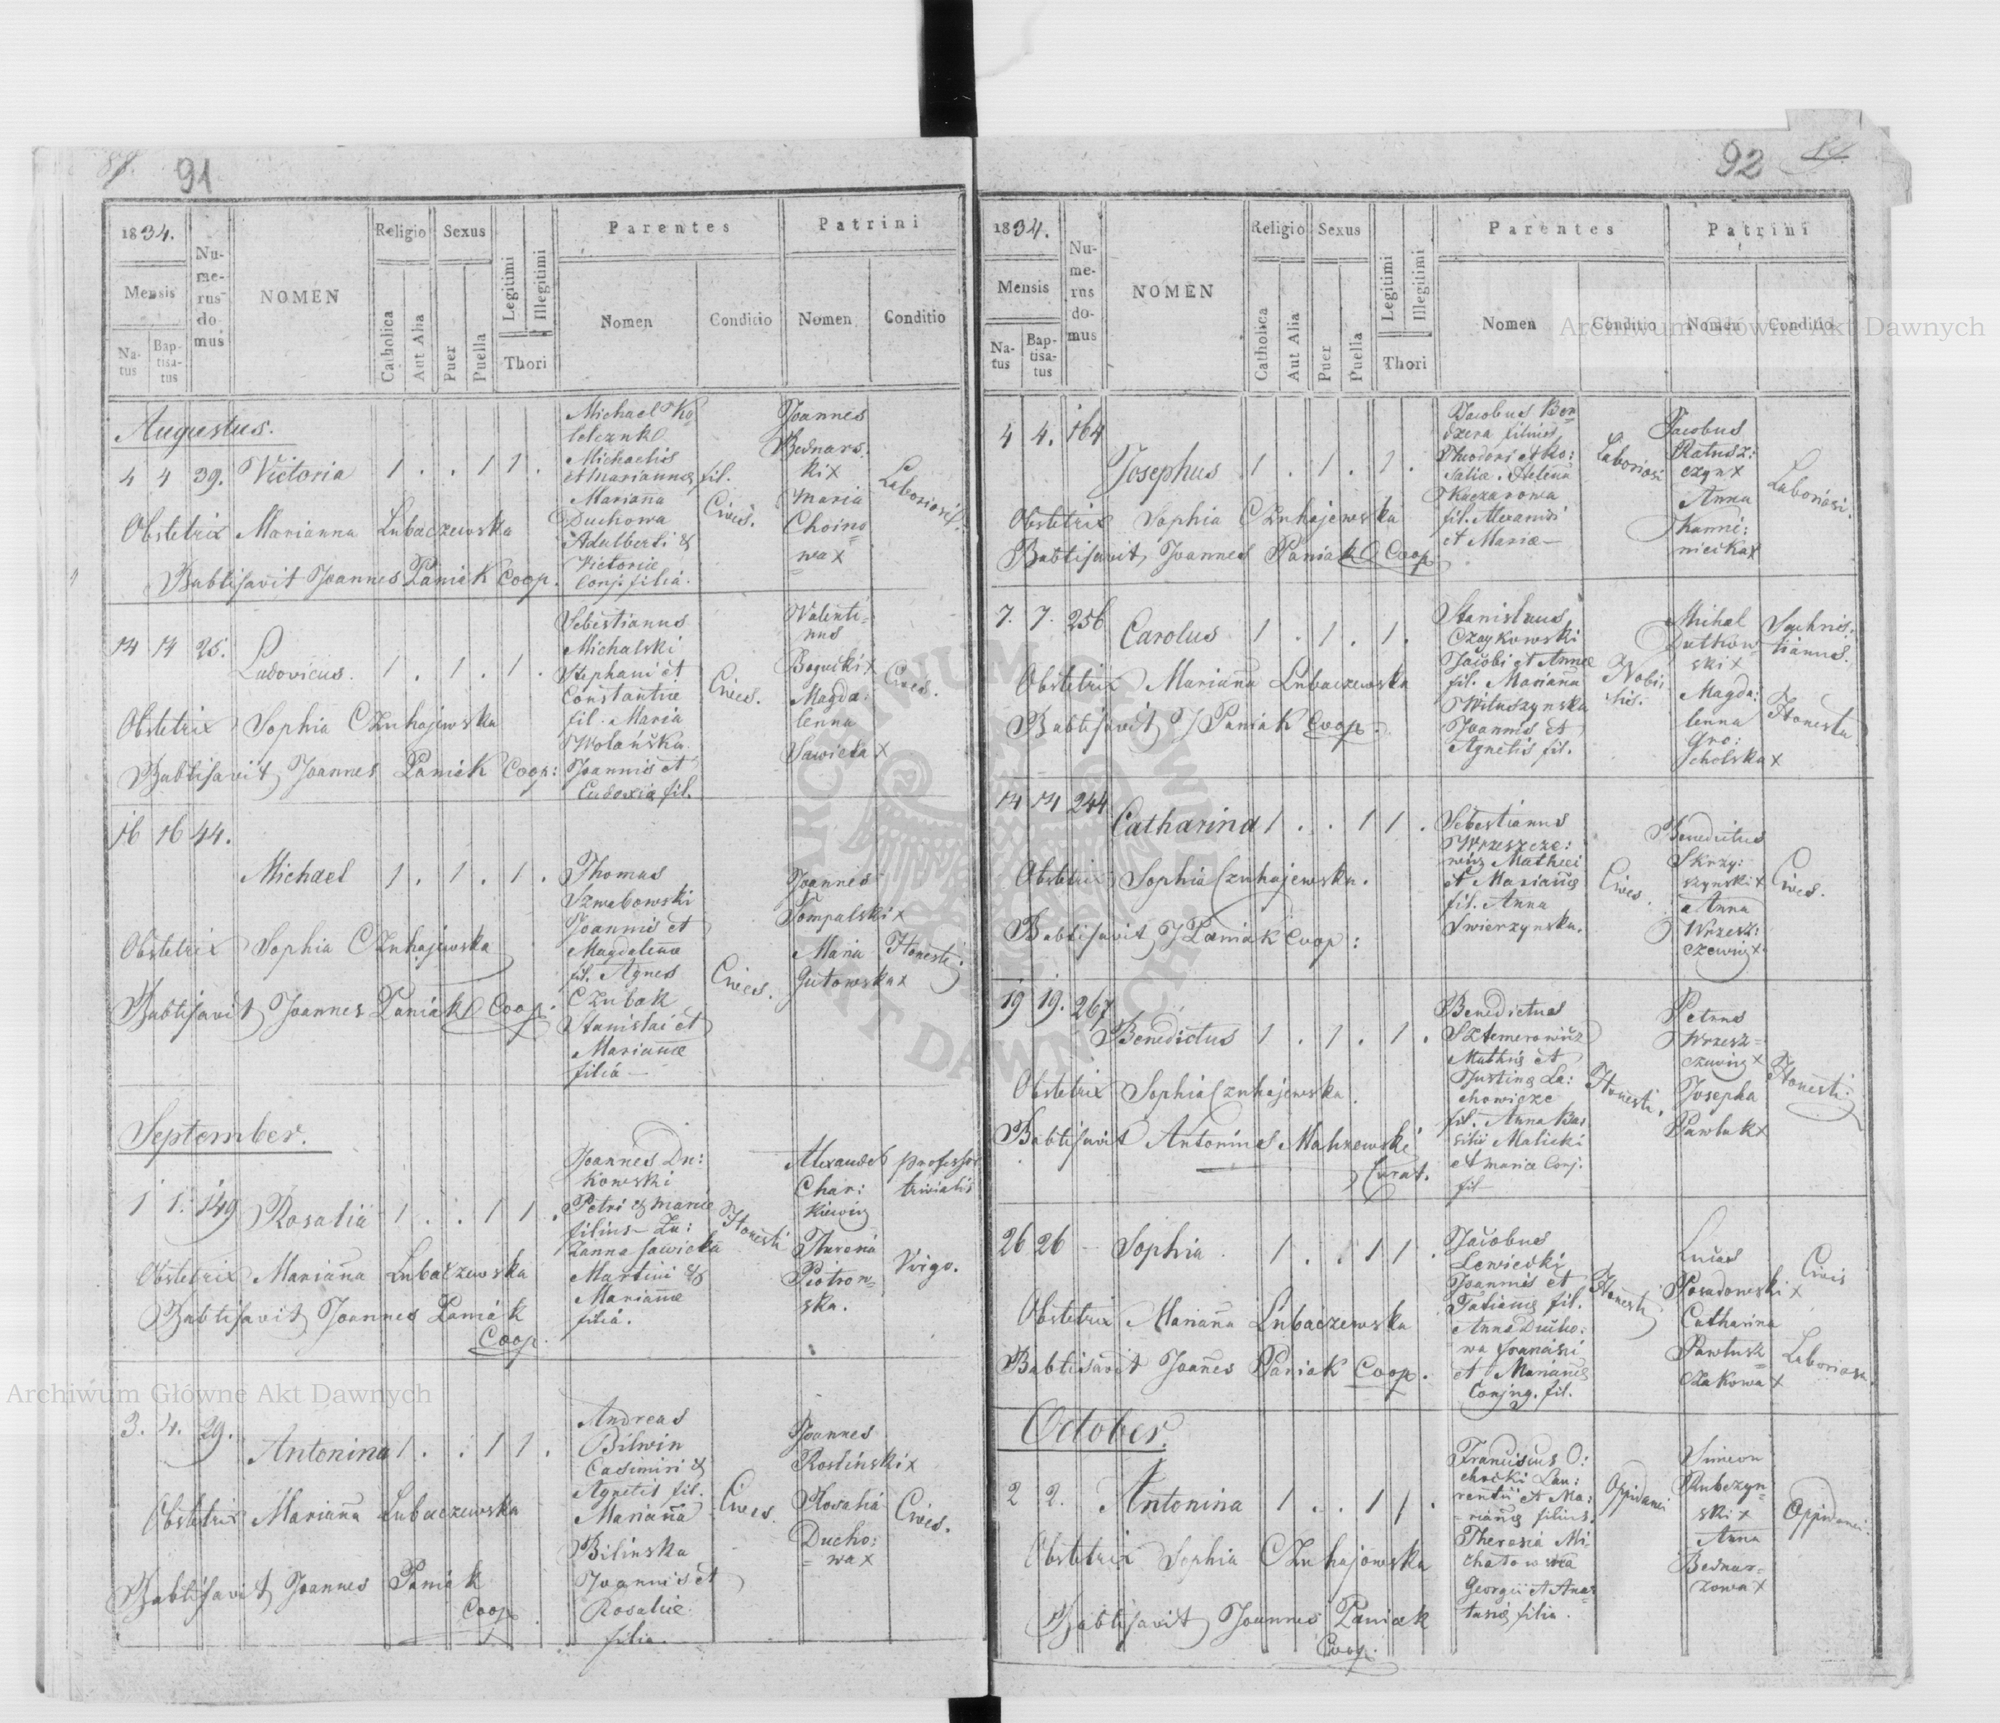 91
1834.
Mensis
Na-
tus
Bap-
tisa-
tus
Nu-
me-
rus
do-
mus
NOMEN
Religio
Catholica
Aut Alia
Sexus
Puer
Puella
Legitimi
Illegitimi
Thori
Parentes
Nomen
Conditio
Patrini
Nomen
Conditio
Augustus.
4 4 39. Victoria 1 . . 1 1 .
Obstetrix Marianna Lubaczewska
Babtisavit Joannes Paniak Coop.
Michaelis
et Mariannae fil.
Marianna
Duchowa
Adalberti &
Victoriae
Conj. filia.
Cives.
Joannes
Bednars
ki x
Maria
Choino
wa x
Laboriosi.
14 14 25. Ludovicus. 1 . 1 . 1 .
Obstetrix Sophia Czuhajewska
Babtisavit Joannes Paniak Coop:
Sebestianus
Michalski
Stephani et
Constantiae
fil. Maria
Wolańska
Joannis et
Eudoxia fil.
Cives.
Valenti-
nus
x
Magda:
lenna
Sawicka x
Cives.
16 16 44.
Michael 1 . 1 . 1 .
Obstetrix Sophia Czuhajewska
Babtisavit Joannes Paniak Coop.
Thomas
Szwabowski
Joannis et
Magdalenae
fil. Agnes
Czubak
Stanislai et
Mariannae
filia
Cives.
Joannes
Tompalski x
Maria
Gutowska x
Honesti.
September.
1 1. 149 Rosalia 1 . . 1 1 .
Obstetrix Marianna Lubaczewska
Babtisavit Joannes Paniak
Coop.
Joannes Du:
kowski
Petri & Mariae
filius Zu:
zanna Sawicka
Martini &
Mariannae
filia.
Honesti
Alexander
Char:
kiewicz
Piotrow-
ska.
professor
trivialis
Virgo.
3. 4. 29. Antonina 1 . . 1 1 .
Obstetrix Marianna Lubaczewska
Babtisavit Joannes Paniak
Coop
Andreas
Bilwin
Casimiri &
Agnetis fil.
Marianna
Bilinska
Joannis et
Rosaliae
filia.
Cives.
Joannes
Rosliński x
Rosalia
Ducho:
wa x
Cives.
92
1834.
Mensis
Na-
tus
Bap-
tisa-
tus
Nu-
me-
rus
do-
mus
NOMEN
Religio
Catholica
Aut Alia
Sexus
Puer
Puella
Legitimi
Illegitimi
Thori
Parentes
Nomen
Conditio
Patrini
Nomen
Conditio
4 4. 164
Josephus 1 . 1 . 1 .
Obstetrix Sophia Czuhajewska
Babtisavit Joannes Paniak Coop
Jacobus Bon
dzera filius
Theodori et Ro:
saliae. Helena
Kaczarowa
fil. Alexandri
et Mariae
Laboriosi
Jacobus
Ratusz:
czyn x
Anna
Kamie:
niecka x
Laboriosi.
7. 7. 256 Carolus 1 . 1 . 1 .
Obstetrix Marianna Lubaczewska
Babtisavit J Paniak Coop.
Stanislaus
Czaykowski
Jacobi et Annae
fil. Marianna
Wituszynska
Joannis et
Agnetis fil.
Nobi
les.
Mihal
Dutkow-
ski x
Magda:
lenna
Gro:
cholska x
Sachris-
tianus.
Honesta
14 14 244 Catharina 1 . . 1 1 .
Obstetrix Sophia Czuhajewska.
Babtisavit J Paniak Coop:
Sebestianus
Wrzeszcze:
wicz Mathei
et Mariannae
fil. Anna
Swierzynska.
Cives.
Benedictus
Skrzy:
szynski x
Anna
Wrzesz:
czewicz x
Cives.
19 19. 267 Benedictus 1 . 1 . 1 .
Obstetrix Sophia Czuhajewska.
Babtisavit Antonius
Curat.
Benedictus
Justina La:
chowicze
fil. Anna Bas
silii Malicki
et Mariae Conj.
fil
Honesti.
Petrus
Wrzesz-
czewicz x
Josepha
Pawluk x
Honesti.
26 26 - Sophia. 1 . . 1 1 .
Obstetrix Marianna Lubaczewska
Babtisavit Joannes Paniak Coop.
Jacobus
Lewicki
Joannis et
Tatiannae fil.
Anna Ducho:
wa Francisci
et Mariannae
Conjug. fil.
Honesti
Lucas
Posadowski x
Catharina
Pawlusz-
czakowa x
Civis
Laboriosa.
October.
2 2. Antonina 1 . . 1 1 .
Obstetrix Sophia Czuhajowska
Babtisavit Joannes Paniak
Coop.
Franciscus O:
chocki Lau:
rentii et Ma:
riannae filius.
Theresia Mi
chałowska
Georgii et Anas
tasiae filia.
Oppidanei
Simeon
Rubczyn-
ski x
Anna
Bednar-
zowa x
Oppidanei.
Archiwum Główne Akt Dawnych
Archiwum Główne Akt Dawnych
ARCHIWUM GŁÓWNE AKT DAWNYCH